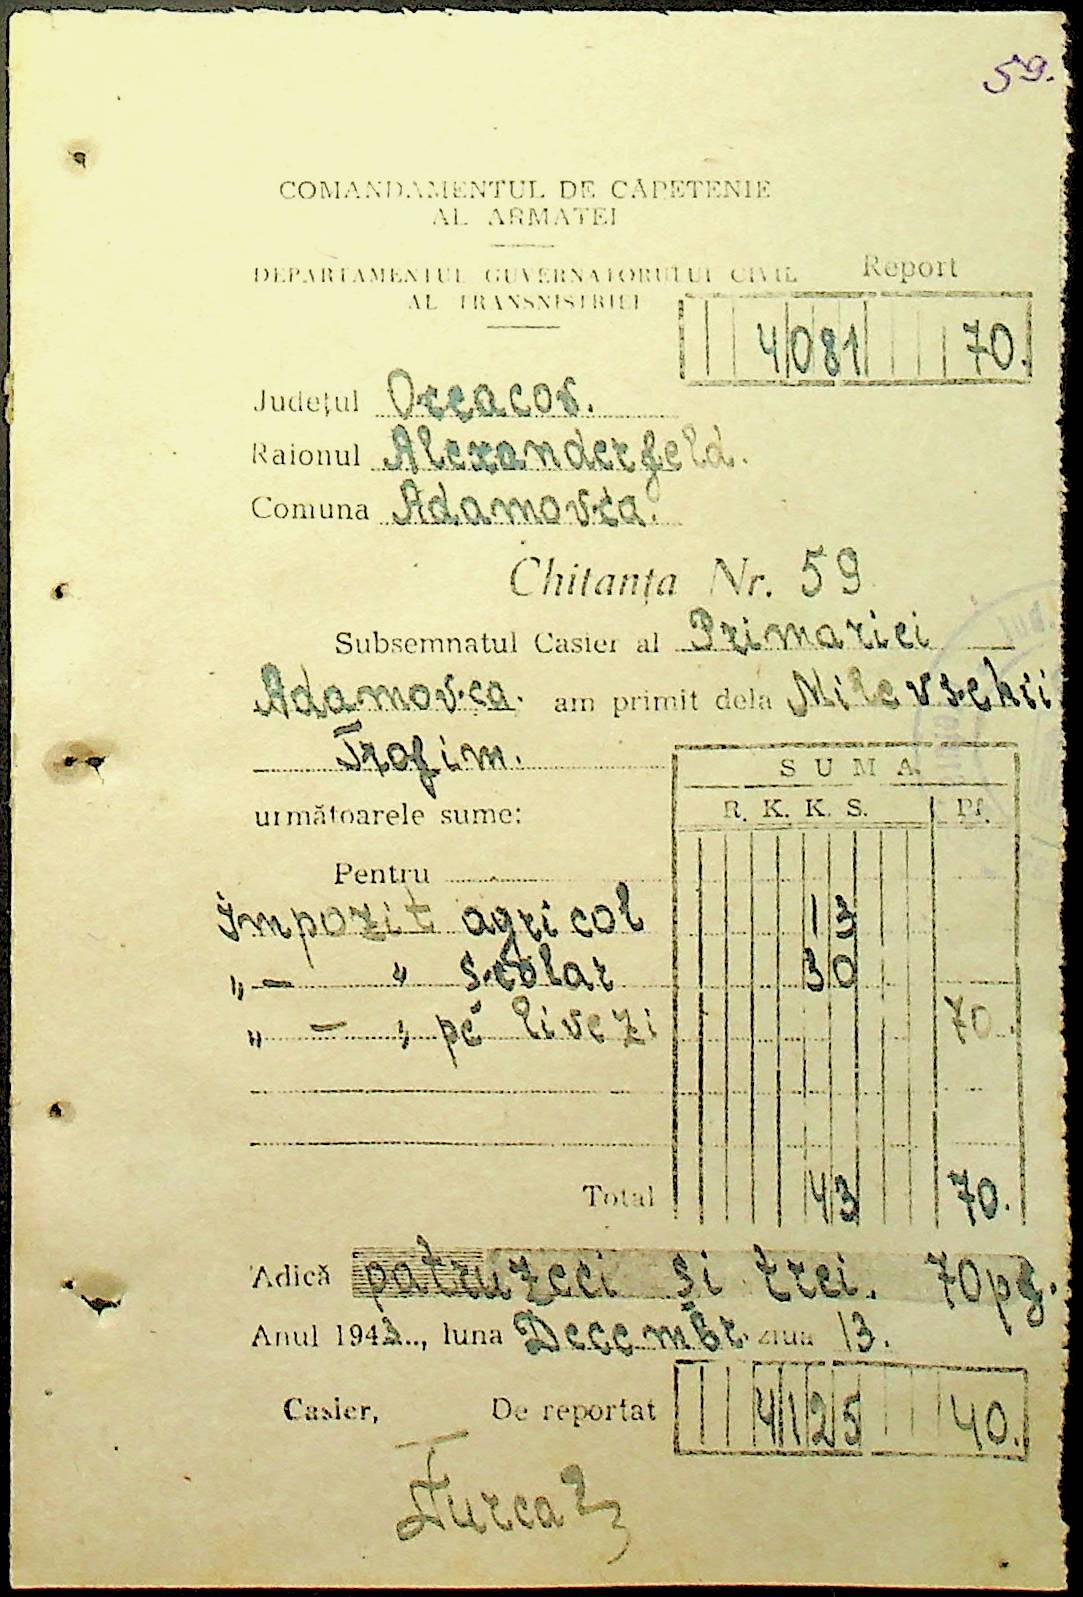 59.
COMANDAMENTUL DE CĂPETENIE
AL ARMATEI
DEPARTAMENTUL GUVERNATORULUI CIVIL
AL TRANSNISTRIEI
Report
4081 70.
Județul Oceacov.
Raionul Alexanderfeld.
Comuna Adamovca.
Chitanța Nr. 59
Subsemnatul Casier al Primariei
Adamovca. am primit dela Milevschii
Trofim.
următoarele sume:
SUMA
R. K. K. S. Pf.
Pentru
Impozit agricol 13
„ — „ scolar 30
„ — „ pe livezi 70.
Total 43 70.
Adică patruzeci si trei. 70 pf.
Anul 1943., luna Decembr. ziua 13.
Casier, De reportat 4125 40.